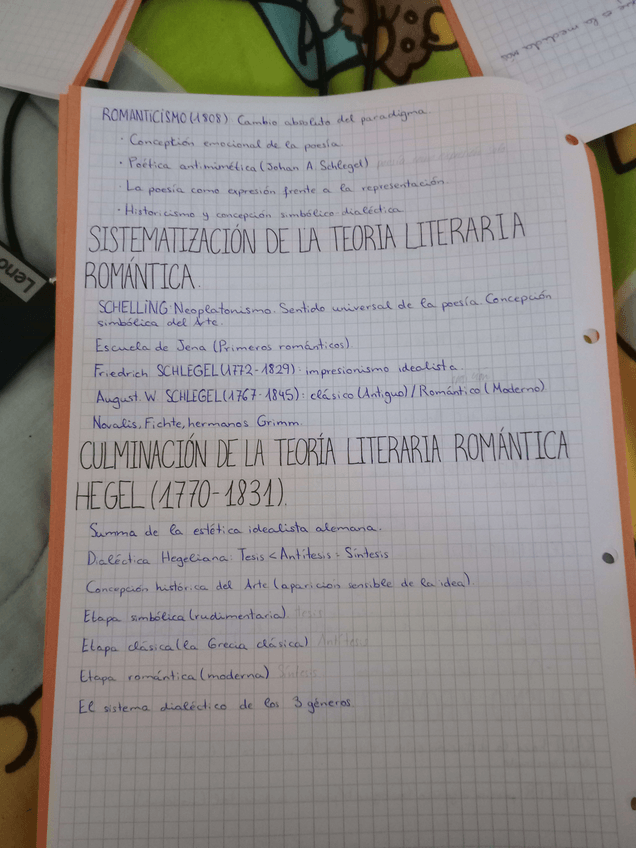 ue a la medida
Leno
ROMANTICISMO (1808) Cambio absoluto del paradigma.
· Concepción emocional de la poesía.
· Poética antimimética (Johan A. Schlegel)
· La poesía como expresión frente a la representación.
· Historicismo y concepción simbólico dialéctica.
SISTEMATIZACIÓN DE LA TEORIA LITERARIA
ROMÁNTICA.
SCHELLING: Neoplatonismo. Sentido universal de la poesía. Concepción
simbólica del Arte.
Escuela de Jena (Primeros románticos)
Friedrich SCHLEGEL (1772-1829): impresionismo idealista.
August. W SCHLEGEL (1767-1845): clásico (Antiguo) / Romántico (Moderno)
Novalis, Fichte, hermanos Grimm.
CULMINACIÓN DE LA TEORÍA LITERARIA ROMÁNTICA
HEGEL (1770-1831).
Summa de la estética idealista alemana.
Dialéctica Hegeliana: Tesis < Antítesis = Síntesis
Concepción histórica del Arte (aparición sensible de la idea)
Etapa simbólica (rudimentaria) tesis
Etapa clásica (la Grecia clásica) Antítesis
Etapa romántica (moderna) Síntesis
El sistema dialéctico de los 3 géneros.